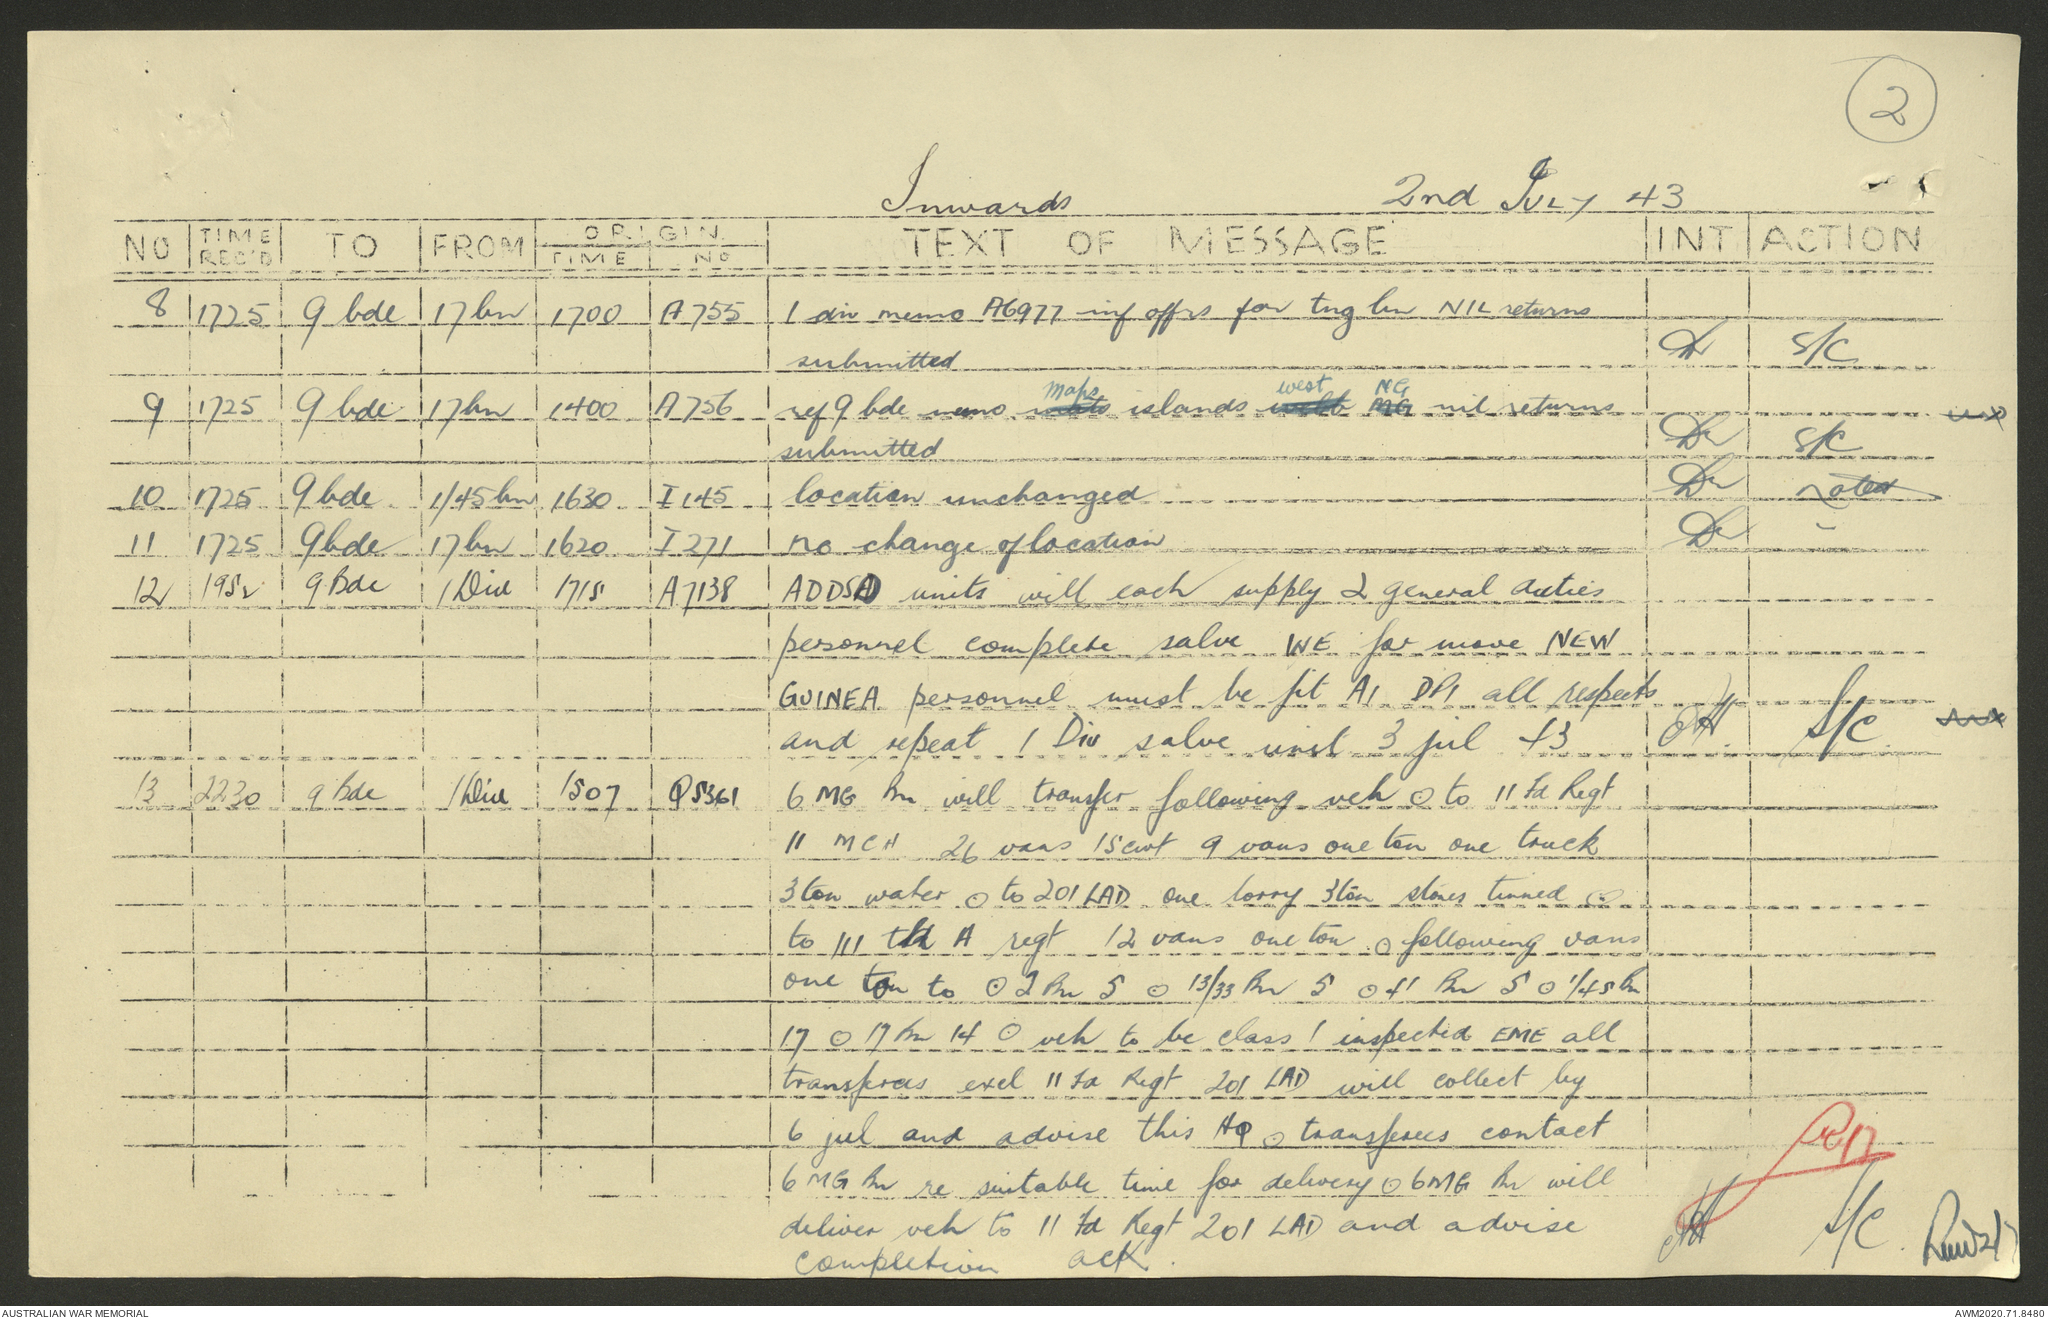 2
Inwards 2nd JULY 43
NO TIME REC'D TO FROM ORIGIN. TIME NO TEXT OF MESSAGE INT ACTION
8 1725 9 bde 17 bn 1700 A755 1 div memo A6977 inf offrs for tng bn NIL returns
submitted S/C
9 1725 9 bde 17 bn 1400 A756 ref 9 bde memo maps islands west NG nil returns
submitted S/C
10 1725 9 bde 1/45 bn 1630 I145 location unchanged noted
11 1725 9 bde 17 bn 1620 I271 no change of location -
12 1952 9 Bde 1 Div 1715 A7138 ADDSD units will each supply 2 general duties
personnel complete salve WE for move NEW
GUINEA personnel must be fit A1 DP1 all respects
and repeat 1 Div salve unit 3 jul 43 S/C
13 2230 9 Bde 1 Div 1507 Q5361 6 MG Bn will transfer following veh ⊙ to 11 Fd Regt
11 MCH 26 vans 15cwt 9 vans one ton one truck
3 ton water ⊙ to 201 LAD one lorry 3 ton stores tinned ⊙
to 111 tk A regt 12 vans one ton ⊙ following vans
one ton to ⊙ 2 Bn 5 ⊙ 13/33 Bn 5 ⊙ 41 Bn 5 ⊙ 1/45 Bn
17 ⊙ 17 Bn 14 ⊙ veh to be class 1 inspected EME all
transferees excl 11 Fd Regt 201 LAD will collect by
6 jul and advise this HQ ⊙ transferees contact
6 MG Bn re suitable time for delivery ⊙ 6 MG Bn will
deliver veh to 11 Fd Regt 201 LAD and advise S/C
completion ack.
AUSTRALIAN WAR MEMORIAL AWM2020.71.8480